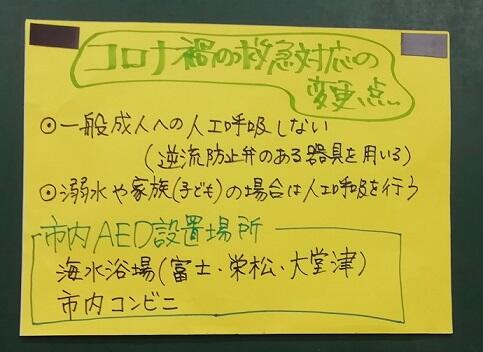 コロナ禍の救急対応の
変更点
⊙一般成人への人工呼吸しない
(逆流防止弁のある器具を用いる)
⊙溺水や家族(子ども)の場合は人工呼吸を行う
市内AED設置場所
海水浴場(富士・栄松・大堂津)
市内コンビニ